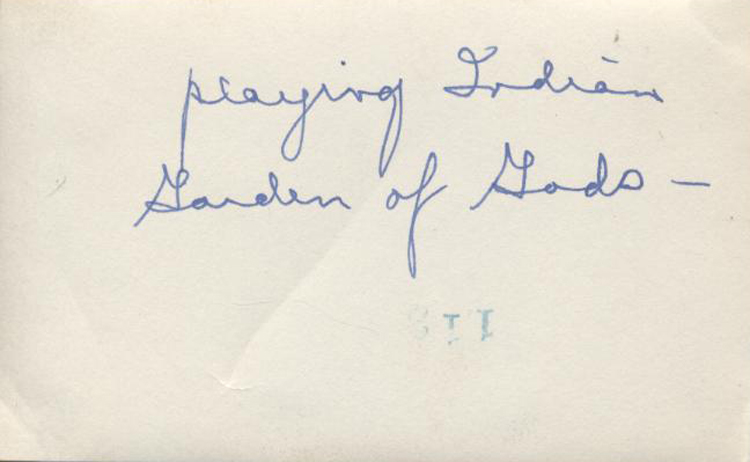 playing Indian
Garden of Gods —